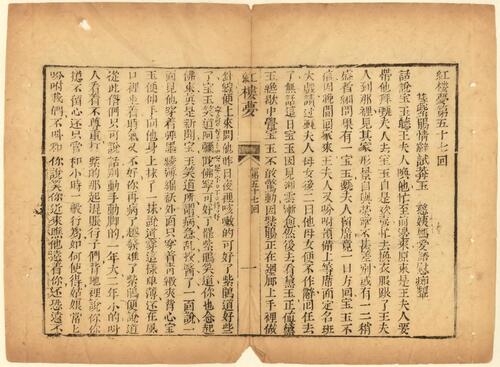 紅樓夢第五十七回
慧紫鵑情辭試莽玉　慈姨媽愛語慰痴顰
話說寶玉聽王夫人喚他忙至前邊來原來是王夫人要
帶他拜甄夫人去寶玉自是歡喜忙去換衣服跟了王夫
人到那裡見其家形景自與榮寧不甚差別或有一二稍
盛者細問果有一寶玉甄夫人留席竟一日方回寶玉不
信因晚間回家來王夫人又吩咐預備上等席面定名班
大戲請過甄夫人母女後二日他母女便不作辭回任去
了無話這日寶玉因見湘雲漸愈然後去看黛玉正值黛
玉纔歇午覺寶玉不敢驚動因紫鵑正在迴廊上手裡做
紅樓夢
第五十七回
一
針綫便上來問他昨日夜裡咳嗽的可好了紫鵑道好些
了寶玉笑道阿彌陀佛寧可好了罷紫鵑笑道你也念起
佛來真是新聞寶玉笑道所謂病急亂投醫了一面說一
面見他穿着彈墨綾薄綿襖外面只穿着青緞夾背心寶
玉便伸手向他身上抹了一抹說道穿這樣單薄還在風
口裡坐着時氣又不好你再病了越發難了紫鵑便說道
從此偺們只可說話別動手動脚的一年大二年小的叫
人看着不尊重打緊的那起混賬行子們背地裡說你你
總不留心還只管和小時一般行爲如何使得姑娘常上
吩咐我們不叫和你說笑你近來瞧他遠着你還恐遠不